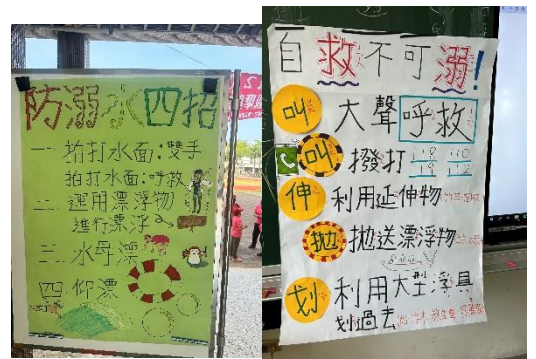 防溺水四招
一、拍打水面:雙手
拍打水面:呼救
二、運用漂浮物
進行漂浮
三、水母漂
四、仰漂
自救不可溺!
叫 大聲呼救
叫 撥打 118 110 119 112
伸 利用延伸物
拋 拋送漂浮物
划 利用大型浮具
划過去